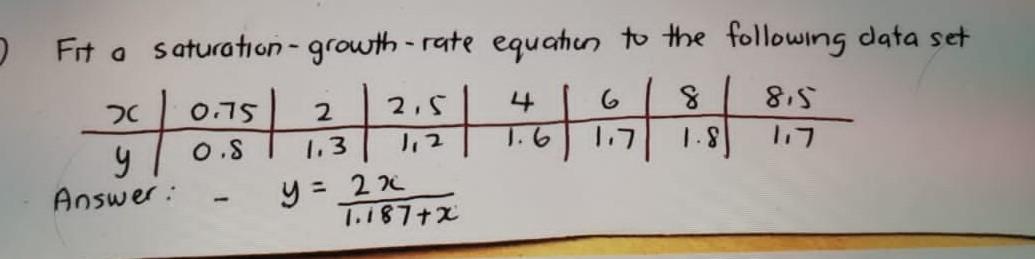 ) Fit a saturation-growth-rate equation to the following data set
x | 0.75 | 2 | 2,5 | 4 | 6 | 8 | 8,5
y | 0.8 | 1.3 | 1,2 | 1.6 | 1.7 | 1.8 | 1.7
Answer: - y = 2x
1.187+x